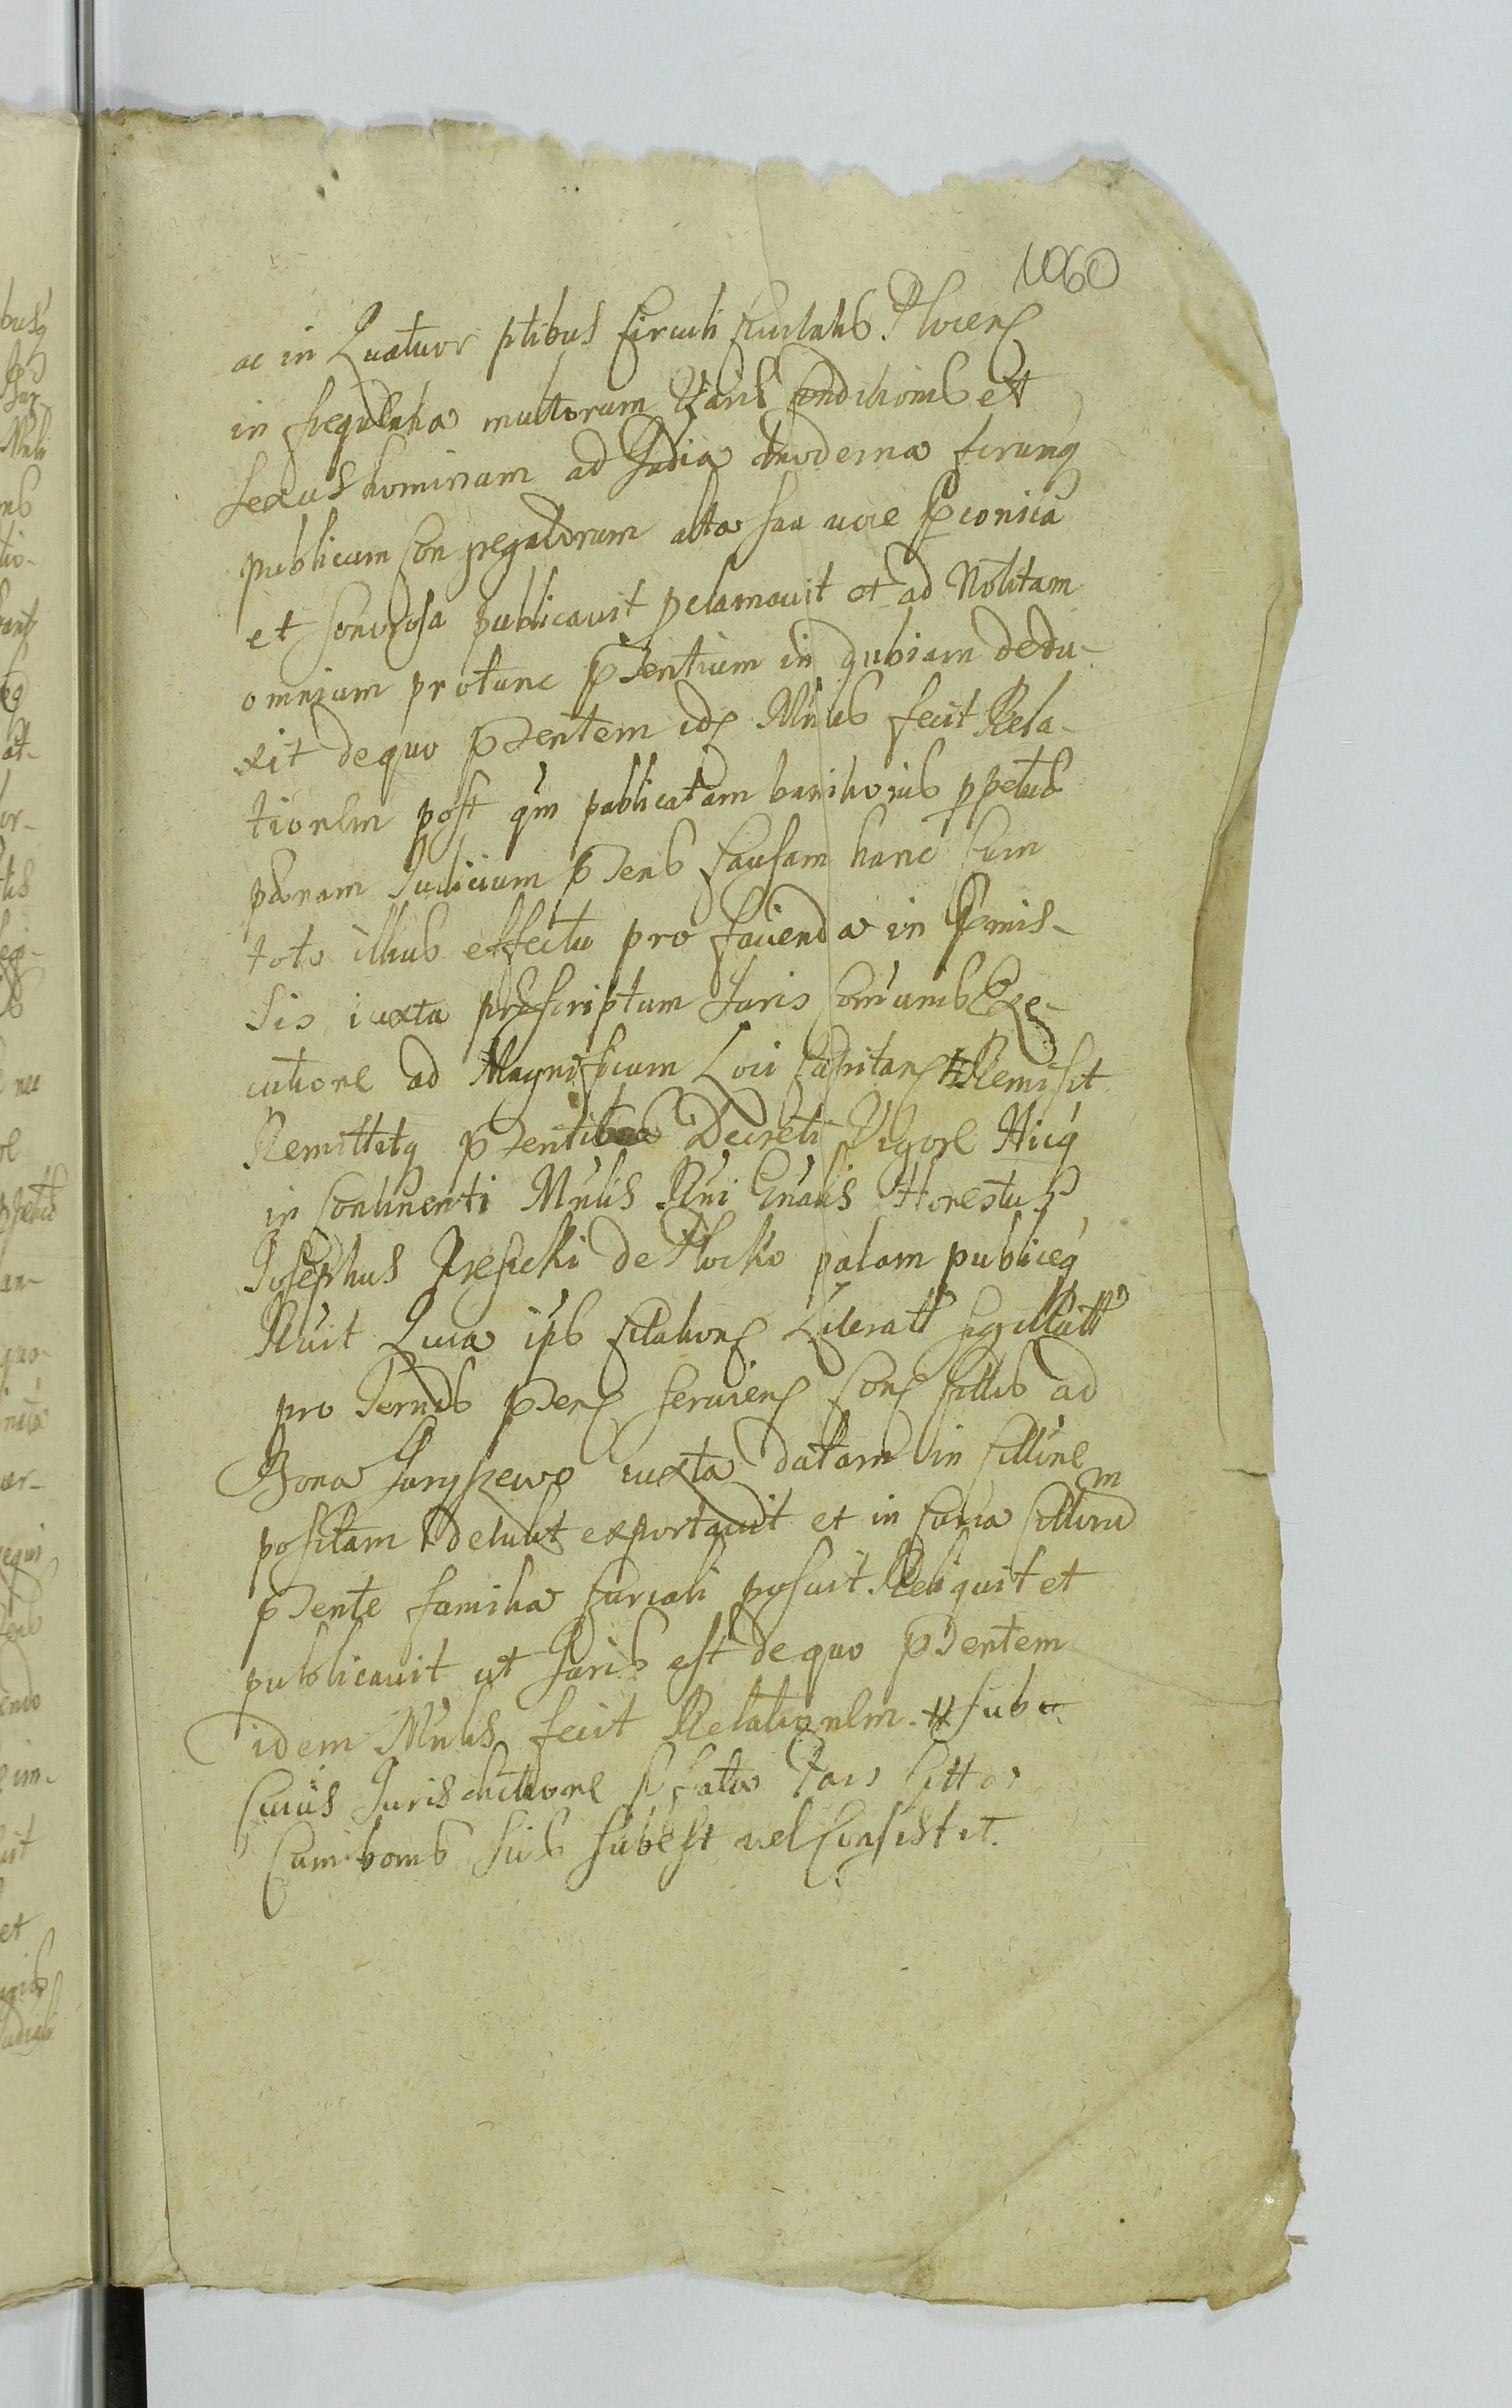 1060
ac in Quatuor ptibus Circuli Civitatis Plocen
in frequentia multorum Varis Conditionis et
sexus hominum ad Judia moderna forumq
publicum Congregatorum alta sua voce Pconica
et sonorosa publicavit pclamavit et ad Notitam
omnium protunc pntium in dubiam dedu-
xit de quo pntem idem Mnlis fecit Rela-
tionem post qm publicatam banitionis ppetuæ
pænam Judicium pns Causam hanc Cum
toto illius effectu pro facienda in Pmis-
sis iuxta præscriptum Juris Comunis Exe-
cutione ad Magnificum Loci Capitan Remisit
Remittitq pntibus Decreti Vigore Hicq
in Continenti Mnlis Rni Gnalis Honestus
Josephus de Plocko palam publiceq
Rnuit Quia ips Citationem Literatt Sigillatt
pro Ternis pnt servien Con Cittis ad
Bona iuxta datam in Citttne
positam detulit exportavit et in Curia Cittorum
pnte familia Curiali posuit Reliquit et
publicavit ut Juris est de quo pntem
idem Mnlis fecit Relationem. sub
Cuius Jurisdictione Pfata Pars Citta
Cum bonis suis subest vel Consistit.